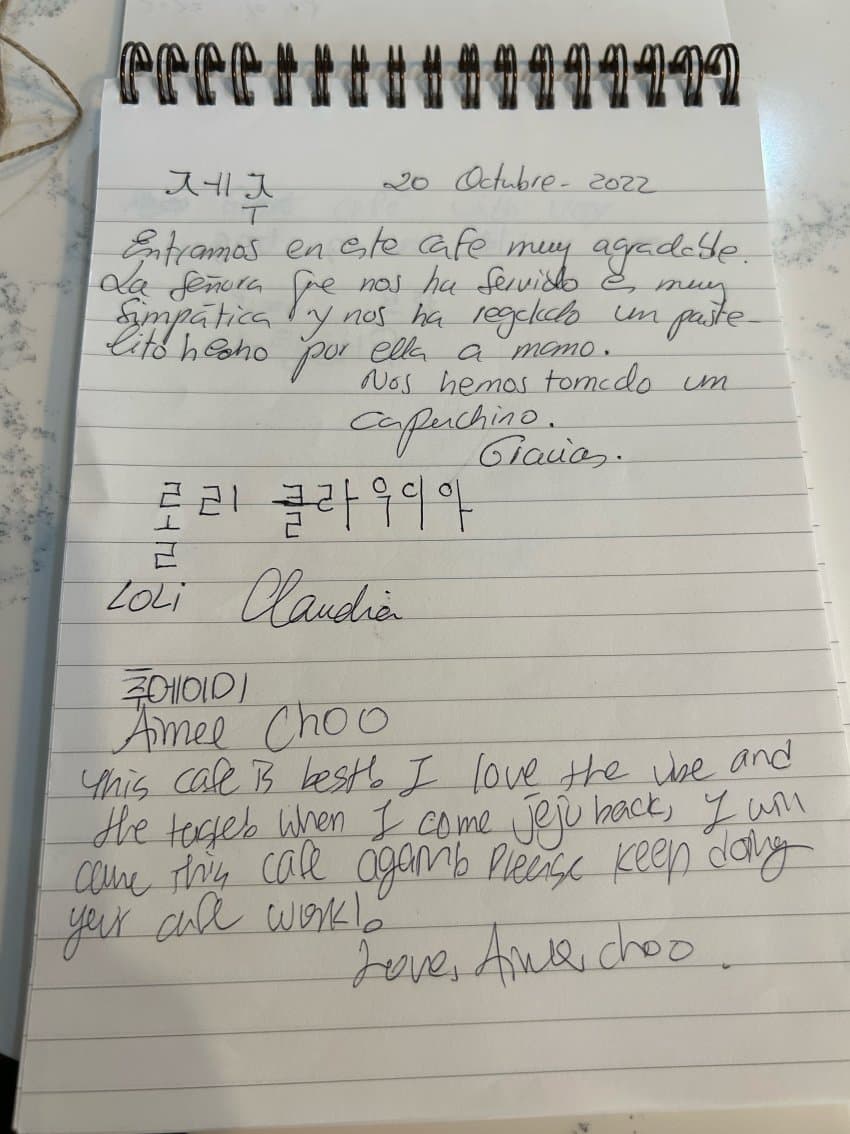 제주 20 Octubre - 2022
Entramos en este cafe muy agradable.
La señora que nos ha servido es muy
simpática y nos ha regalado un paste-
lito hecho por ella a mano.
Nos hemos tomado un
capuchino.
Gracias.
롤리 클라우디아
LOLi Claudia
추에이미
Aimee Choo
This cafe is best!. I love the vibe and
the taste!. When I come jeju back, I will
come this cafe again!. Please keep doing
your cafe work!.
Love, Aimee choo.